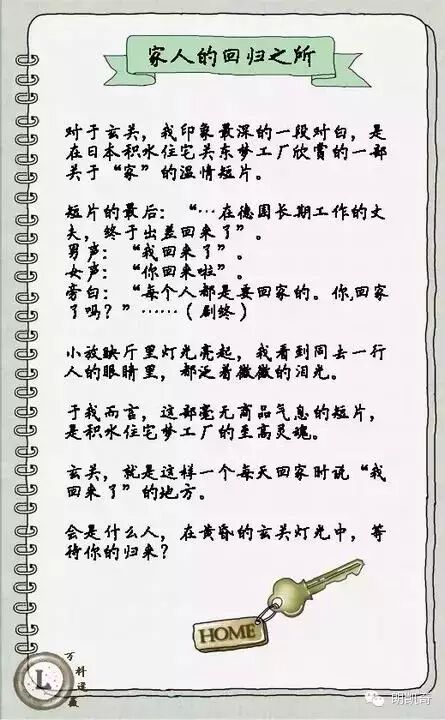 家人的回归之所
对于玄关，我印象最深的一段对白，是
在日本积水住宅关东梦工厂欣赏的一部
关于“家”的温情短片。
短片的最后：“…在德国长期工作的丈
夫，终于出差回来了”。
男声：“我回来了”。
女声：“你回来啦”。
旁白：“每个人都是要回家的。你,回家
了吗？”……（剧终）
小放映厅里灯光亮起，我看到同去一行
人的眼睛里，都泛着微微的泪光。
于我而言，这部毫无商品气息的短片，
是积水住宅梦工厂的至高灵魂。
玄关，就是这样一个每天回家时说“我
回来了”的地方。
会是什么人，在黄昏的玄关灯光中，等
待你的归来？
HOME
L
万科
明凯奇